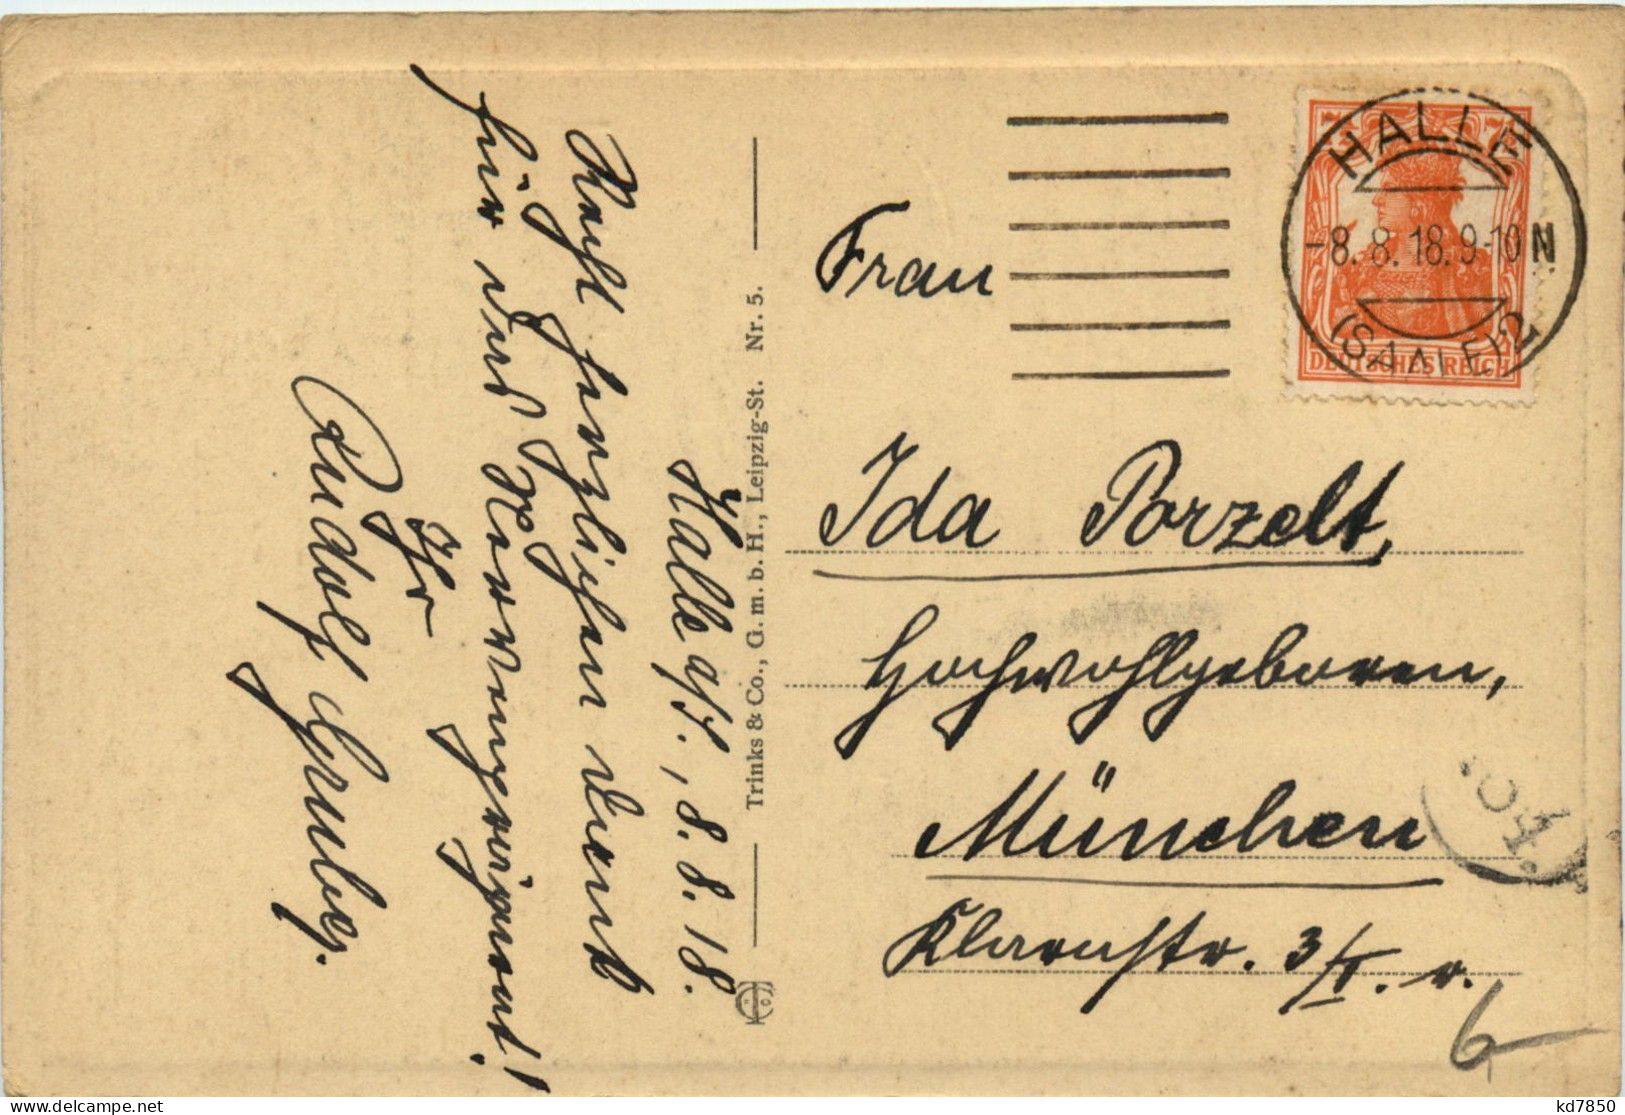 Halle a/S., 8.8.18.
Recht herzlichen Dank
für das
Ihr
Rudolf Gruber.
Trinks & Co., G. m. b. H., Leipzig-St. Nr. 5.
HALLE
-8. 8. 18. 9-10 N
(SAALE) 2
DEUTSCHES REICH
Frau
Ida Porzelt,
Hochwohlgeboren,
München
Klarastr. 3/I. r.
6
kd7850